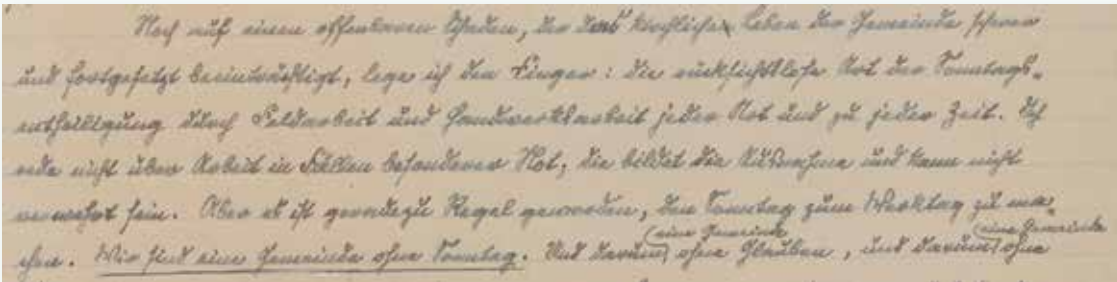 Noch auf einen offenbaren Schaden, der das kirchliche Leben der Gemeinde schwer
und fortgesetzt beeinträchtigt, lege ich den Finger: die rücksichtslose Art der Sonntags-
entheiligung durch Feldarbeit und Handwerksarbeit jeder Art und zu jeder Zeit. Ich
rede nicht über Arbeit in Fällen besonderer Not, die bildet die Ausnahme und kann nicht
verwehrt sein. Aber es ist geradezu Regel geworden, den Sonntag zum Werktag zu ma-
(eine Gemeinde (eine Gemeinde
chen. Wir sind eine Gemeinde ohne Sonntag. Und darum ohne Glauben, und darum ohne